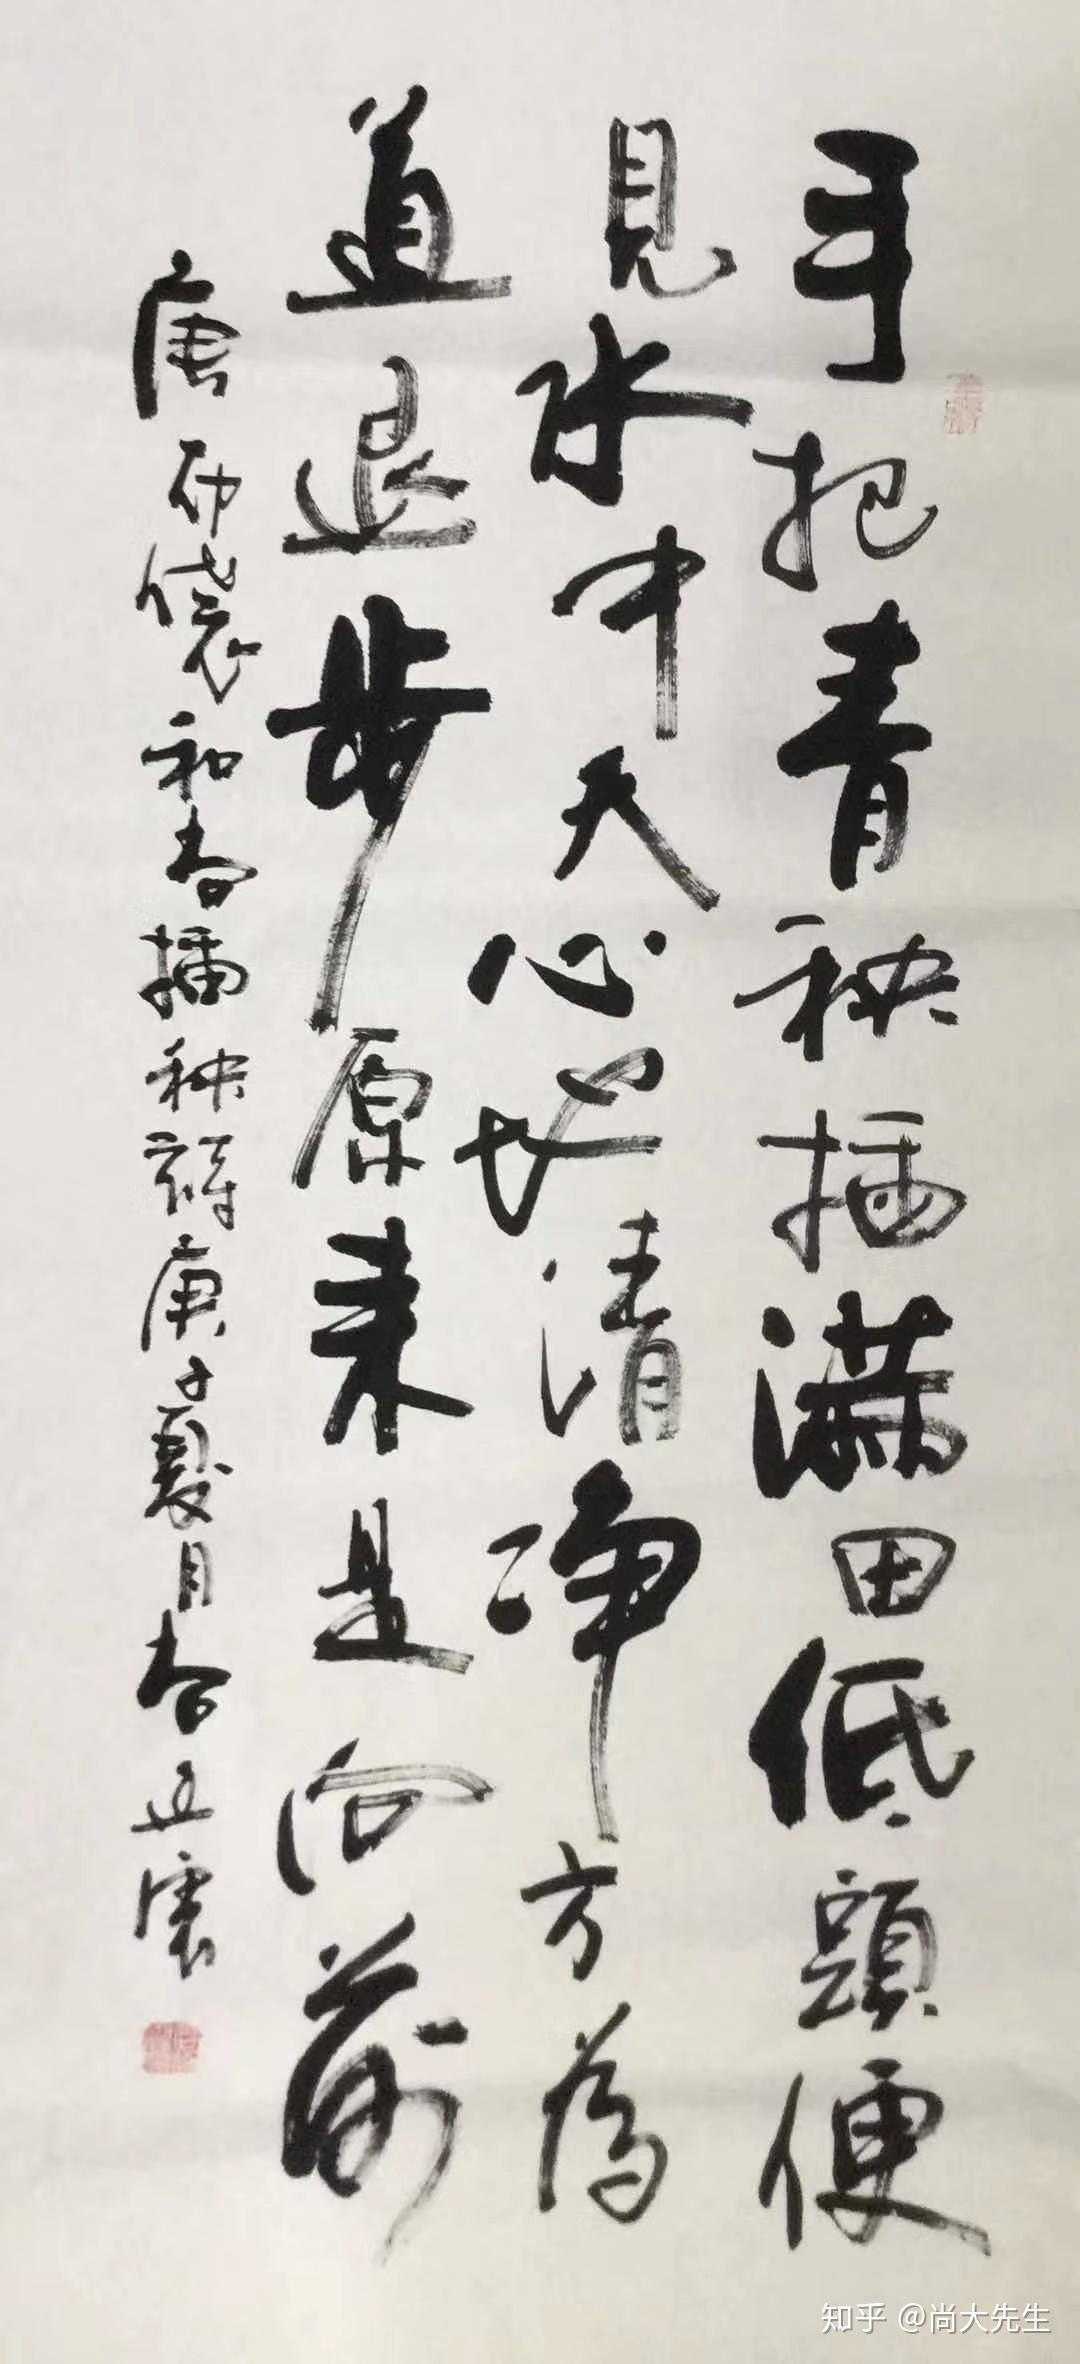 手把青秧插满田低頭便
見水中天心地清净方為
道退步原来是向前
唐布袋和尚插秧詩庚子夏月尚正震
知乎 @尚大先生